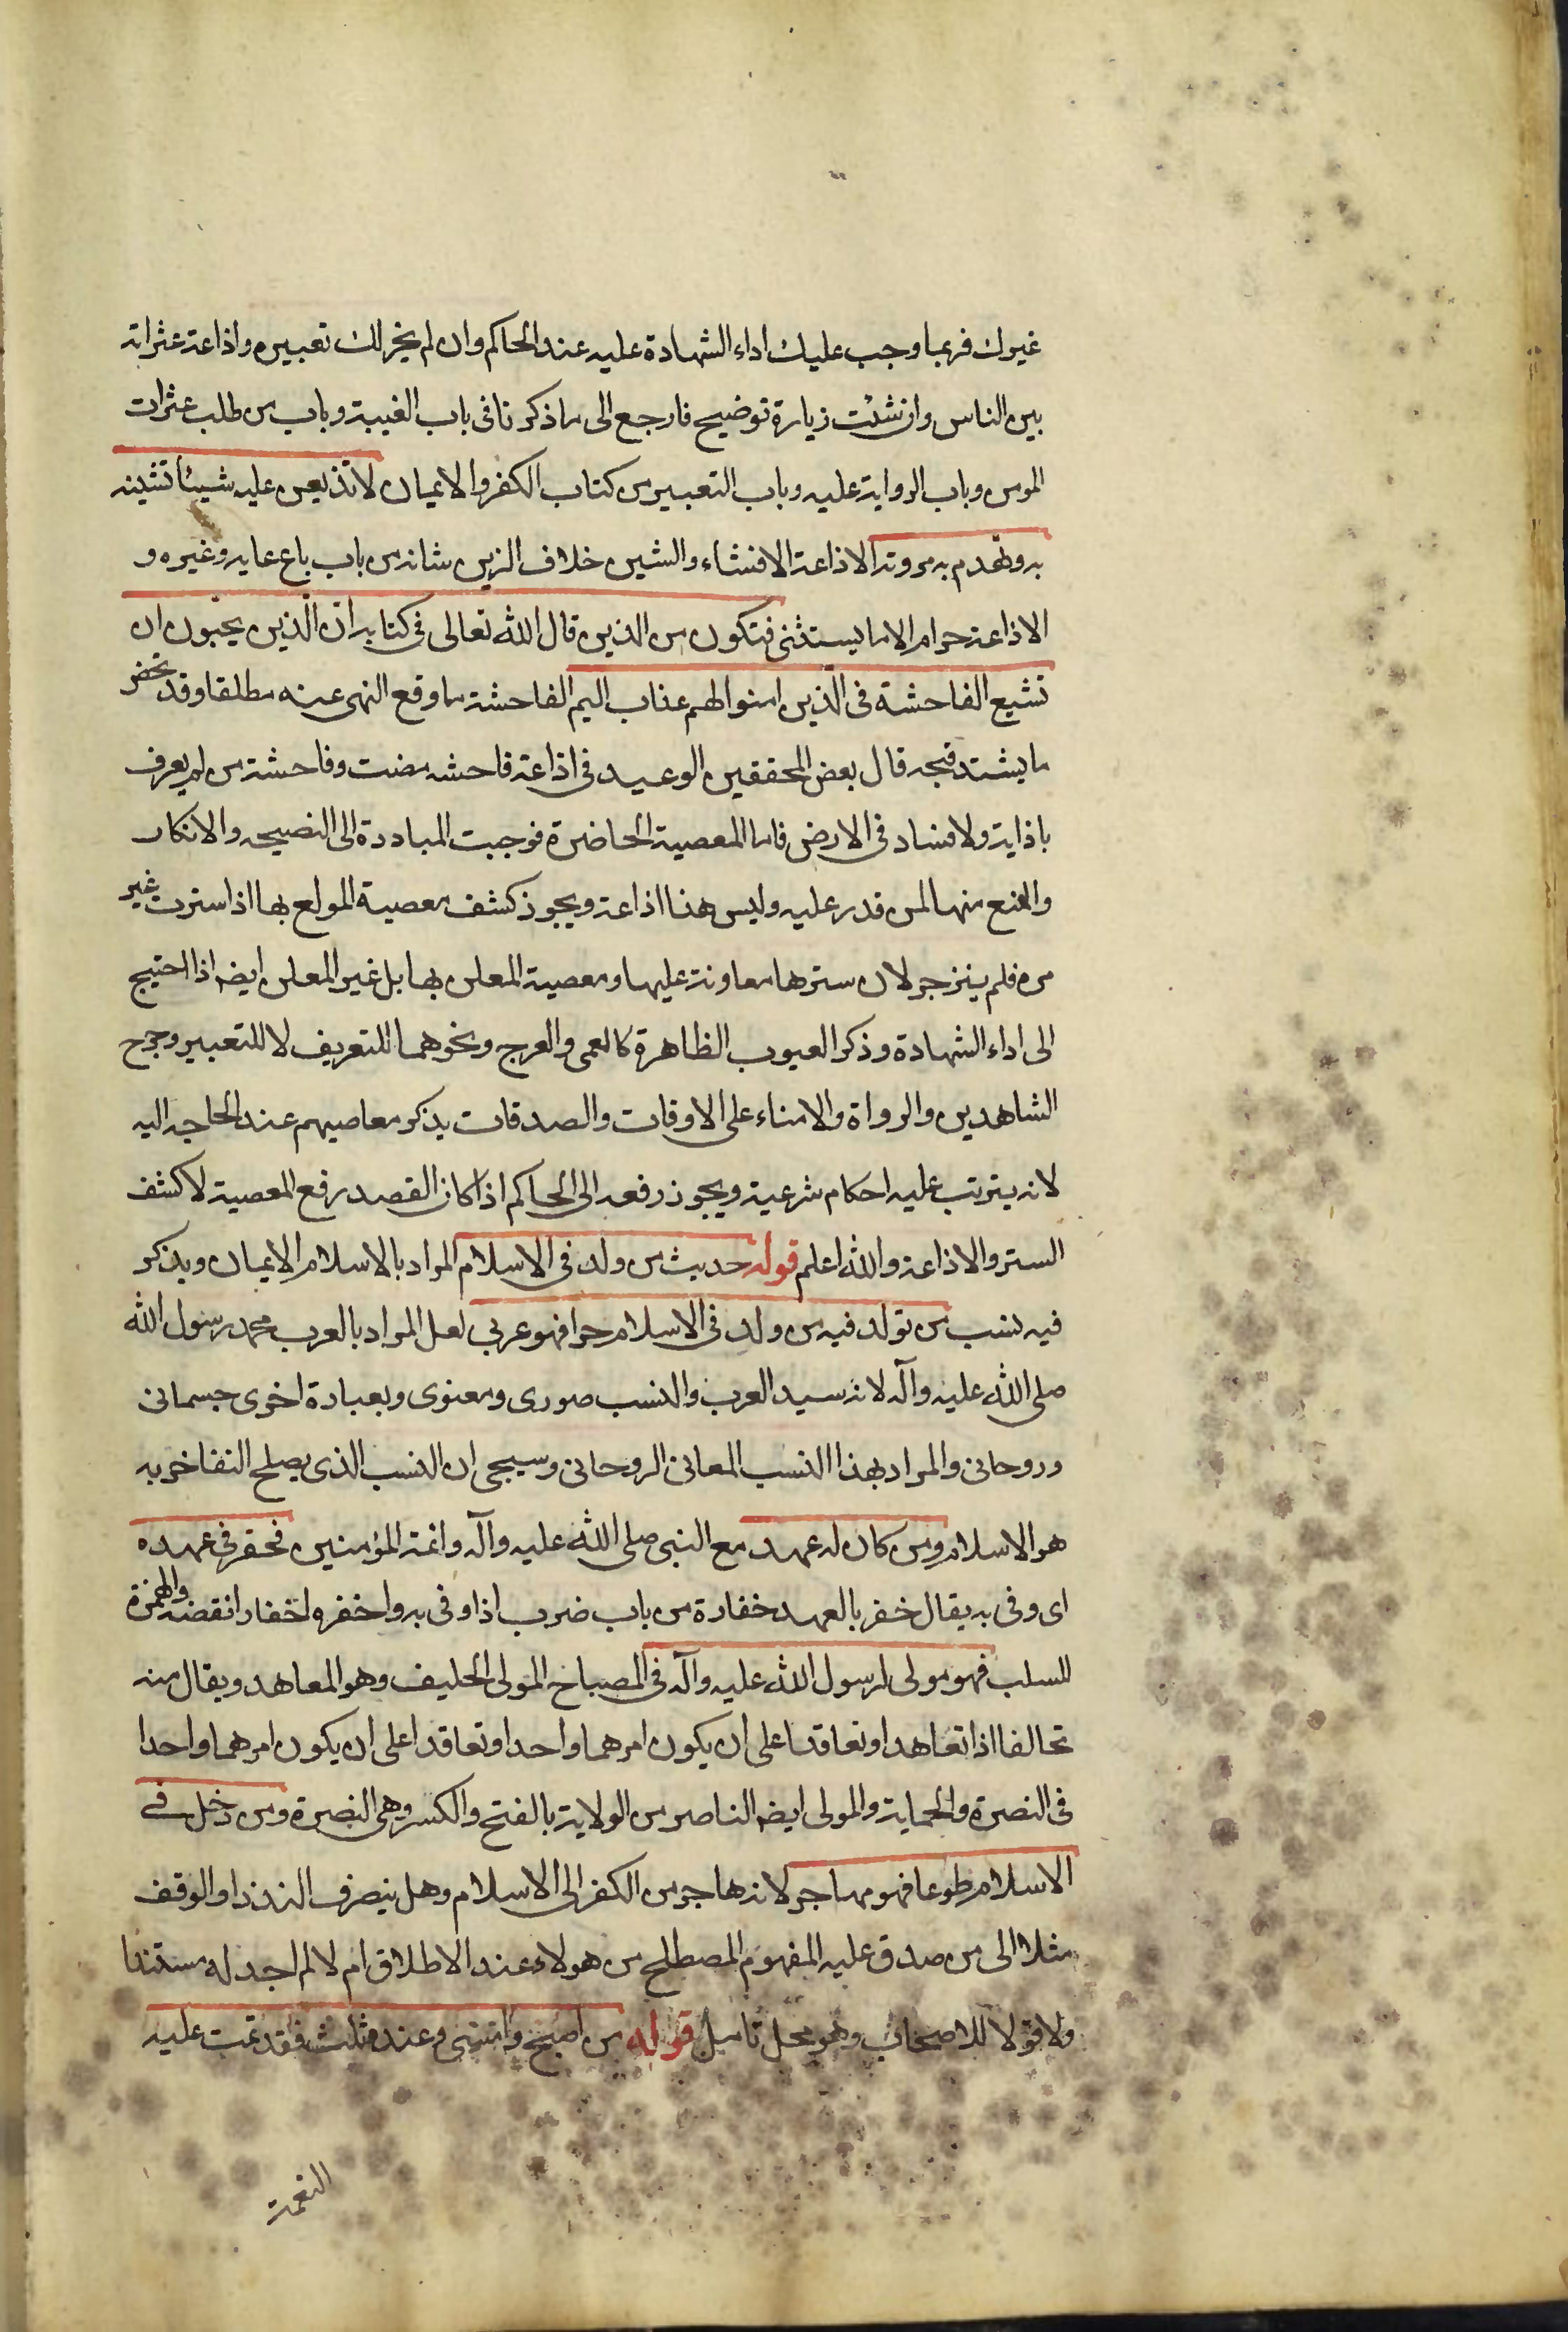 غيرك فربما وجب عليك اداء الشهادة عليه عند الحاكم وان لم يجز لك تعييره واذاعة عثراته
بين الناس وان شئت زيارة توضيح فارجع الى ما ذكرنا فى باب الغيبة وباب من طلب عثرات
المومن وباب الرواية عليه وباب التعيير من كتاب الكفر والايمان لا تذيعن عليه شيئا تشينه
به وتهدم به مروته الاذاعة الافشاء والشين خلاف الزين شانه من باب باع عابه وغيره و
الاذاعة حرام الا ما يستثنى فتكون من الذين قال الله تعالى فى كتابه ان الذين يحبون ان
تشيع الفاحشة فى الذين امنوا لهم عذاب اليم الفاحشة ما وقع النهى عنه مطلقا وقد تخص
ما يشتد قبحه قال بعض المحققين الوعيد فى اذاعة فاحشه مضت وفاحشة من لم يعرف
باذاية ولا فساد فى الارض فاما المعصية الحاضرة فوجبت المباددة الى النصيحه والانكار
والمنع منها لمن قدر عليه وليس هذا اذاعة ويجوز كشف معصية المولع بها اذا سترت غير
مره فلم ينزجر لان سترها معاونة عليها ومعصية المعلن بها بل غير المعلن ايضه اذا احتيج
الى اداء الشهادة وذكر العيوب الظاهرة كالعمى والعرج ونحوهما للتعريف لا للتعيير وجرح
الشاهدين والرواة والامناء على الاوقات والصدقات بذكر معاصيهم عند الحاجه اليه
لانه يترتب عليه احكام شرعية ويجوز رفعه الى الحاكم اذا كان القصد رفع المعصية لا كشف
الستر والاذاعة والله اعلم قوله حديث من ولد فى الاسلام المراد بالاسلام الايمان ويذكر
فيه نسب من تولد فيه من ولد فى الاسلام حرا فهو عربى لعل المراد بالعرب محمد رسول الله
صلى الله عليه وآله لانه سيد العرب والنسب صورى ومعنوى وبعبادة اخرى جسمانى
وروحانى والمراد بهذا النسب المعانى الروحانى وسيجى ان النسب الذى يصلح التفاخر به
هو الاسلام ومن كان له عهد مع النبى صلى الله عليه وآله وائمة المؤمنين فخفر فى عهده
اى وفى به يقال خفر بالعهد خفارة من باب ضرب اذا وفى به واخفر واخفارا نقضه والهمزة
للسلب فهو مولى لرسول الله عليه وآله فى المصباح المولى الحليف وهو المعاهد ويقال منه
تحالفا اذا تعاهدا وتعاقدا على ان يكون امرهما واحدا وتعاقدا على ان يكون امرهما واحدا
فى النصرة والحماية والمولى ايضه الناصر من الولاية بالفتح والكسر وهى النصرة ومن دخل فى
الاسلام طوعا فهو مهاجر لانه هاجر من الكفر الى الاسلام وهل ينصرف النذر او الوقف
مثلا الى من صدق عليه المفهوم المصطلح من هولاء عند الاطلاق ام لا لم اجد له مستندا
ولا قولا للاصحاب وهو محل تامل قوله من اصبح وامسى وعنده ثلث فقد تمت عليه
النعمة